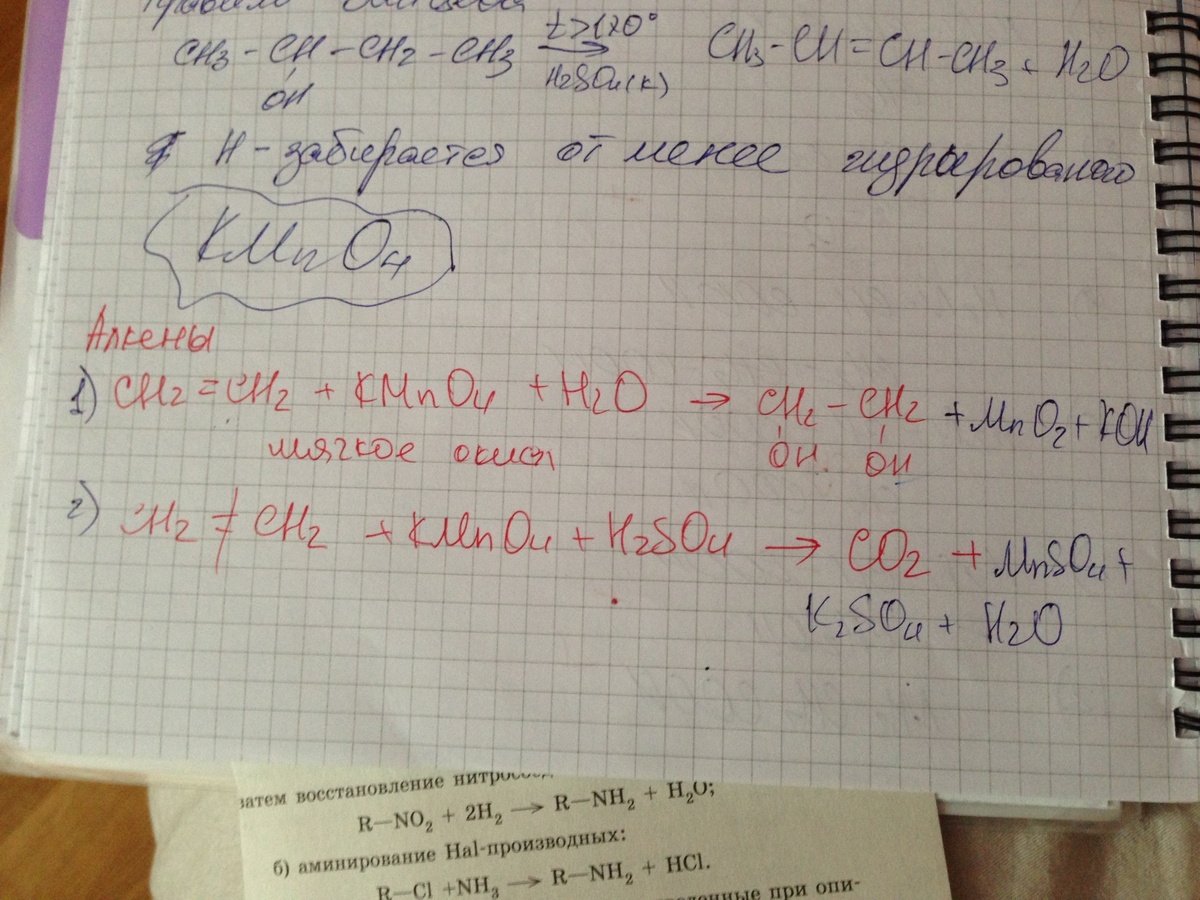 Правило Зайцева
t>120°
CH3 - CH - CH2 - CH3 → CH3 - CH = CH - CH3 + H2O
H2SO4(к)
OH
H - забирается от менее гидрированого
KMnO4
Алкены
1) CH2 = CH2 + KMnO4 + H2O → CH2 - CH2 + MnO2 + KOH
мягкое окисл OH OH
2) CH2 = CH2 + KMnO4 + H2SO4 → CO2 + MnSO4 +
K2SO4 + H2O
затем восстановление
R—NO2 + 2H2 → R—NH2 + H2O;
б) аминирование Hal-производных:
R—Cl +NH3 → R—NH2 + HCl.
при опи-